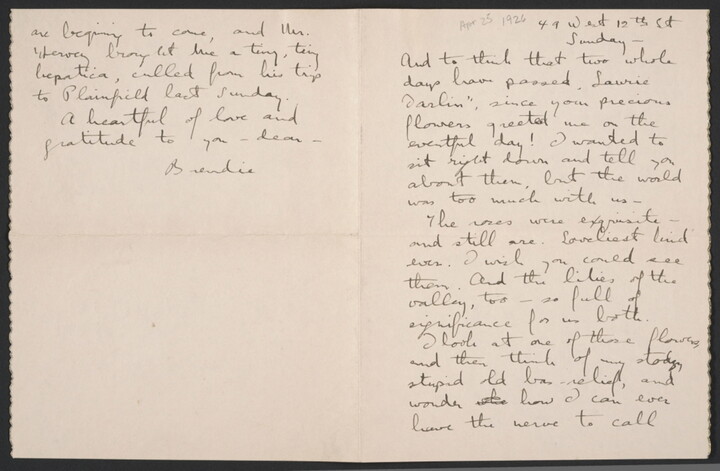 are begining to come, and Mr.
Hervey brought me a tiny, tiny
hepatica, culled from his trip
to Plainfield last Sunday.
A heartful of love and
gratitude to you - dear -
Brendie
Apr 25 1926
49 West 12th St
Sunday -
And to think that two whole
days have passed, Laurie
Darlin", since your precious
flowers greeted me on the
eventful day! I wanted to
sit right down and tell you
about them, but the world
was too much with us -
The roses were exquisite -
and still are. Loveliest kind
ever. I wish you could see
them. And the lilies of the
valley, too - so full of
significance for us both.
I look at one of those flowers
and then think of my stodgy
stupid old bas-relief, and
wonder how I can ever
have the nerve to call